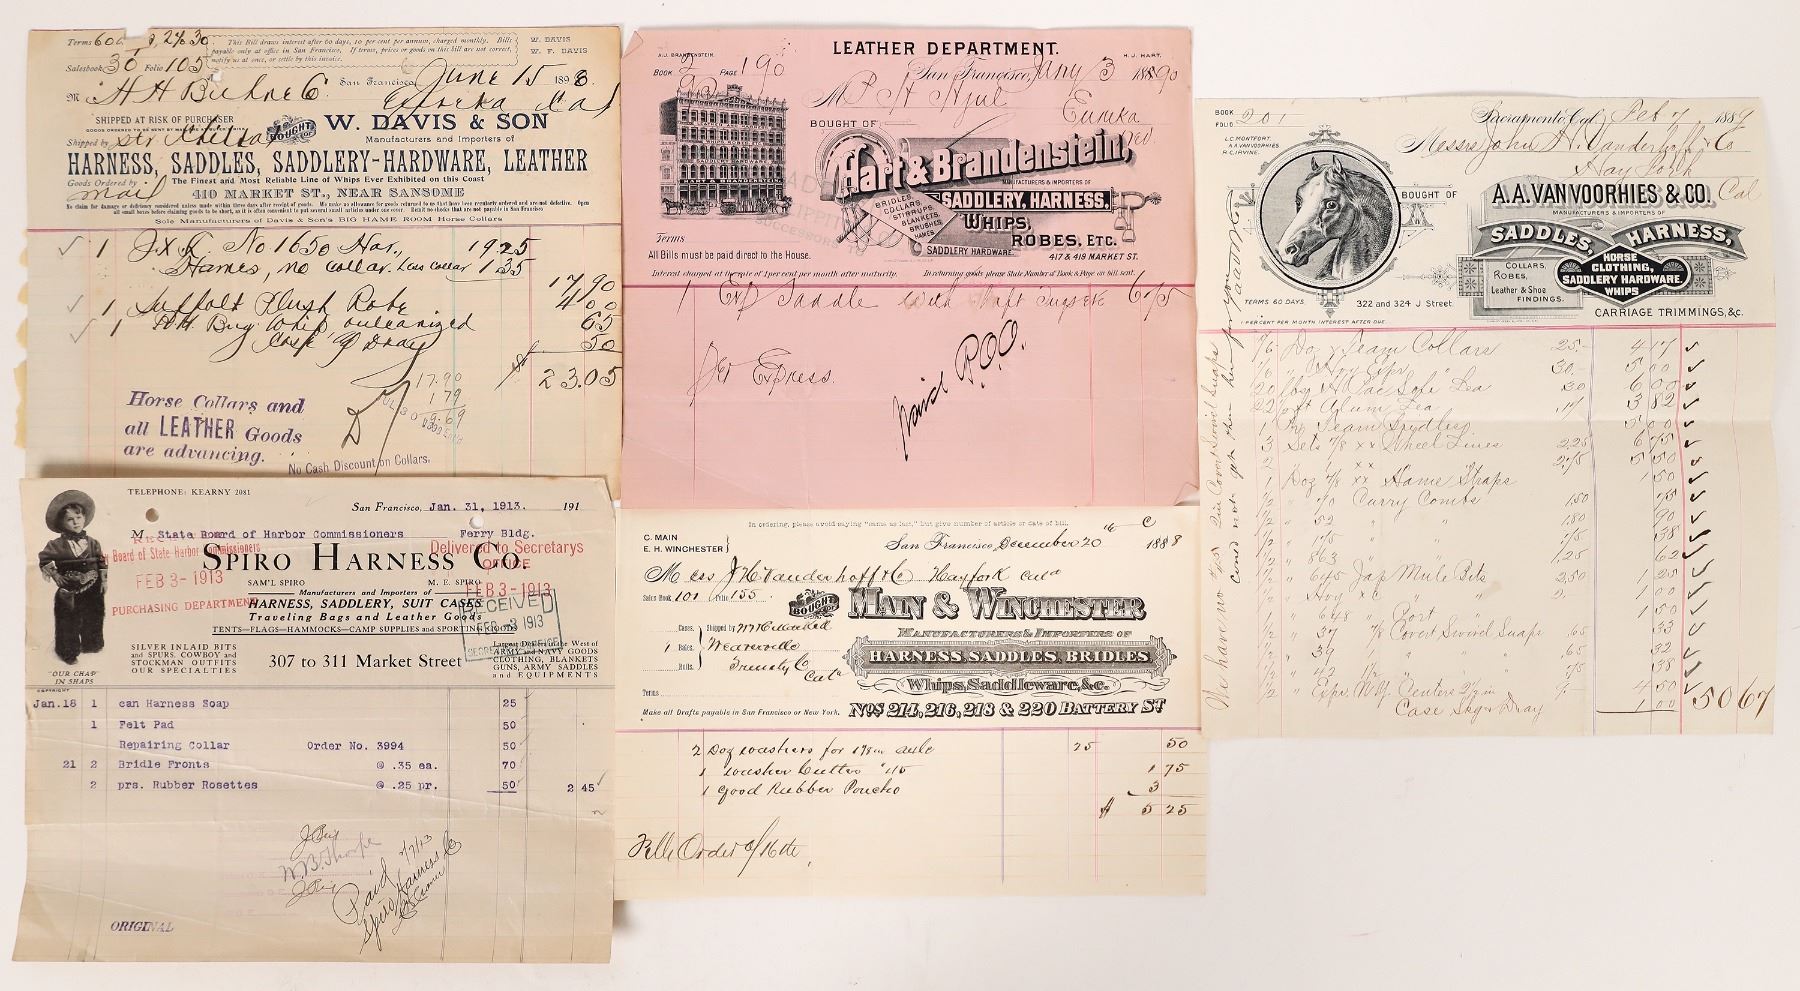 Terms 60 d
This Bill draws interest after 60 days, 10 per cent per annum, charged monthly. Bills
payable only at office in San Francisco. If terms, prices or goods on this bill are not correct,
notify us at once, or settle by this invoice.
W. DAVIS
W. F. DAVIS
Salesbook 30 Folio 105
San Francisco, June 15 1898.
M H H Buhne Co
Eureka Cal
SHIPPED AT RISK OF PURCHASER
BOUGHT OF
W. DAVIS & SON
Manufacturers and Importers of
Shipped by Str
HARNESS, SADDLES, SADDLERY-HARDWARE, LEATHER
Goods Ordered by mail
The Finest and Most Reliable Line of Whips Ever Exhibited on this Coast
410 MARKET ST., NEAR SANSOME
No claim for damages or deficiency considered unless made within three days after receipt of goods. We make no allowance for goods returned to us that have been regularly ordered and are not defective. Open
all small boxes before claiming goods to be short, as it is often convenient to put several small articles under one cover. Retail of sacks that are not payable in San Francisco
Sole Manufacturers of Davis & Son's BIG HAME ROOM Horse Collars
1 No 1650 Har., 19 25
Hames, no collar. Less collar 1 35
17 90
1 Suffolk Plush Robe 4 00
1 Bug Whip vulcanized 65
Case & Dray 50
23.05
17.90
1 79
Horse Collars and
all LEATHER Goods
are advancing.
No Cash Discount on Collars.
LEATHER DEPARTMENT.
A.J. BRANDENSTEIN.
H. J. HART.
BOOK 2 PAGE 190
San Francisco, Jany 3 1890
M P H
Eureka
BOUGHT OF
Hart & Brandenstein,
MANUFACTURERS & IMPORTERS OF
SADDLERY, HARNESS,
BRIDLES
COLLARS,
STIRRUPS,
BLANKETS,
BRUSHES
HAMES
WHIPS,
ROBES, ETC.
SADDLERY HARDWARE.
417 & 419 MARKET ST.
Terms
All Bills must be paid direct to the House.
Interest charged at the rate of 1 per cent per month after maturity. In returning goods please State Number of Book & Page on bill sent.
1 Exp Saddle with Shaft Tugs 6 75
Per Express.
Paid P.O.O.
BOOK
FOLIO 201
Sacramento, Cal. Feb 7 1889
L.C. MONTFORT.
A.A. VANVOORHIES
R.C. IRVINE.
Messrs John H. Vanderhoff & Co
Hay Fork
Cal
BOUGHT OF
A.A. VAN VOORHIES & CO.
MANUFACTURERS & IMPORTERS OF
SADDLES, HARNESS,
COLLARS,
ROBES,
Leather & Shoe
FINDINGS.
HORSE
CLOTHING,
SADDLERY HARDWARE,
WHIPS
CARRIAGE TRIMMINGS, &c.
TERMS 60 DAYS.
322 and 324 J Street.
1 PER CENT PER MONTH INTEREST AFTER DUE.
1/6 Doz Team Collars 25.- 4 17
1/6 " Hvy Expr 30.- 5 00
20 Lea 30 6 00
22 Alum Lea 3 82
1 Pr Team 5 00
3 Sets 7/8 xx Wheel Lines 2 25 6 75
2 " 1 xx " 2 75 5 50
1 Doz 7/8 xx Hame Straps 1 50
1/2 " 70 Curry Combs 1 50 75
1/2 " 52 " " 1 80 90
1/2 " " " 75 38
1/2 " 863 " " 1 25 62
1/2 " 645 Jap Mule Bits 2 50 1 25
1/2 " Hvy xc " " 2.- 1 00
" 648 " Port 1 50
1/2 " 37 7/8 Covert Swivel Snaps 65 33
1/2 " 39 " " " 65 32
1/2 " 42 " " " 75 38
4 50
Case & Dray 1 00
50 67
We have no Covert Swivel Snaps
TELEPHONE: KEARNY 2081
San Francisco, Jan. 31, 1913. 191
M State Board of Harbor Commissioners Ferry Bldg.
RECEIVED
By Board of State Harbor Commissioners
FEB 3- 1913
PURCHASING DEPARTMENT
Delivered to Secretarys
OFFICE
FEB 3- 1913
SPIRO HARNESS CO.
SAM'L SPIRO M. E. SPIRO
Manufacturers and Importers of
HARNESS, SADDLERY, SUIT CASES
Traveling Bags and Leather Goods
TENTS—FLAGS—HAMMOCKS—CAMP SUPPLIES and SPORTING GOODS
RECEIVED
FEB 3 1913
SECRETARY'S OFFICE
SILVER INLAID BITS
and SPURS, COWBOY and
STOCKMAN OUTFITS
OUR SPECIALTIES
307 to 311 Market Street
Largest Dealers West of
ARMY and NAVY GOODS
CLOTHING, BLANKETS
GUNS, ARMY SADDLES
and EQUIPMENTS
"OUR CHAP"
IN SHAPS
COPYRIGHT
Jan.18 1 can Harness Soap 25
1 Felt Pad 50
Repairing Collar Order No. 3994 50
21 2 Bridle Fronts @ .35 ea. 70
2 prs. Rubber Rosettes @ .25 pr. 50 2 45
W. B. Thorpe
Paid 2/7/13
Spiro Harness Co
ORIGINAL
In ordering, please avoid saying "same as last," but give number of article or date of bill.
C. MAIN
E. H. WINCHESTER
San Francisco, December 20 1888
Mess J H Vanderhoff & Co Hayfork Cala
Sales Book 101 Folio 155
BOUGHT OF
MAIN & WINCHESTER
MANUFACTURERS & IMPORTERS OF
HARNESS, SADDLES, BRIDLES
Whips, Saddleware, &c.
NOS 214, 216, 218 & 220 BATTERY ST
Cases. Shipped by
1 Bales. Weaverville
Rolls. Trinity Co
Cala
Terms
Make all Drafts payable in San Francisco or New York.
2 Doz washers for 1 7/8 in axle 25 50
1 Washer Cutter 1 75
1 Good Rubber Poncho 3
$ 5 25
Fills Order of 16th